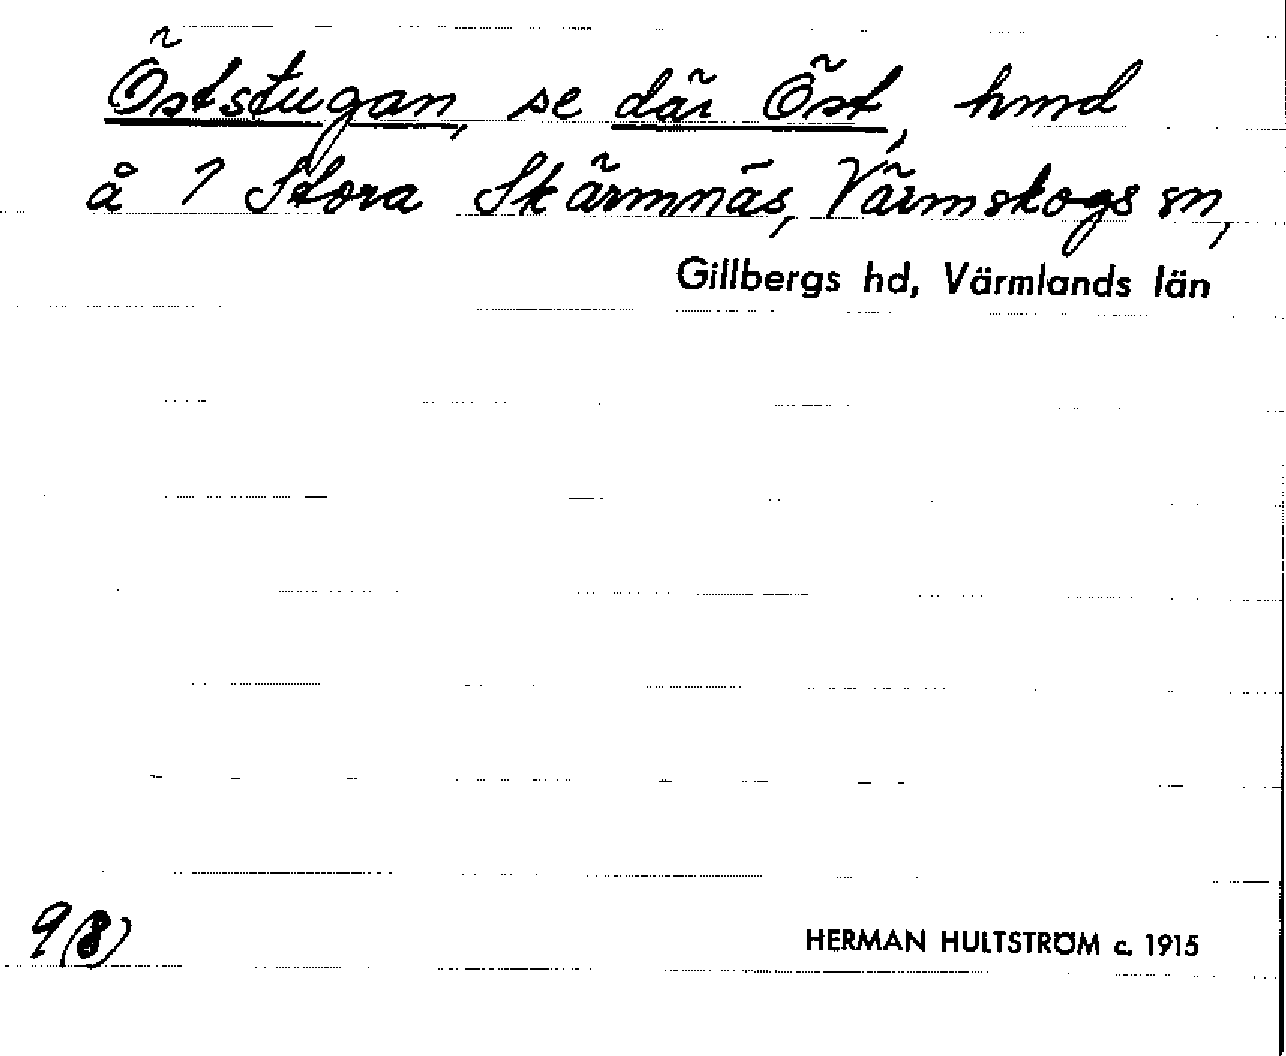 Öststugan, se där Öst, hmd
å 1 Stora Skärmnäs, Värmskogs sn,
Gillbergs hd, Värmlands län
9(8)
HERMAN HULTSTRÖM c. 1915